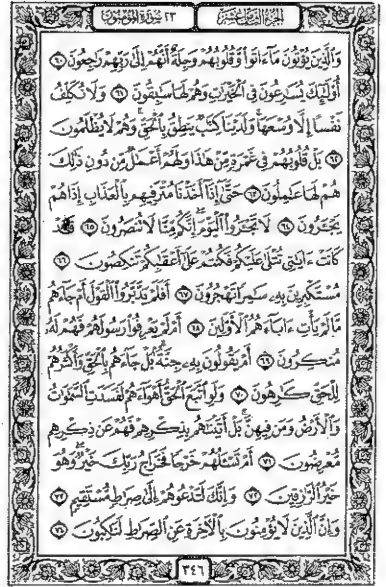 الجزء الثامن عشر
٢٣ سورة المؤمنون
وَٱلَّذِينَ يُؤْتُونَ مَآ ءَاتَوا۟ وَّقُلُوبُهُمْ وَجِلَةٌ أَنَّهُمْ إِلَىٰ رَبِّهِمْ رَٰجِعُونَ ٦٠
أُو۟لَٰٓئِكَ يُسَٰرِعُونَ فِى ٱلْخَيْرَٰتِ وَهُمْ لَهَا سَٰبِقُونَ ٦١ وَلَا نُكَلِّفُ
نَفْسًا إِلَّا وُسْعَهَا ۖ وَلَدَيْنَا كِتَٰبٌ يَنطِقُ بِٱلْحَقِّ ۚ وَهُمْ لَا يُظْلَمُونَ
٦٢ بَلْ قُلُوبُهُمْ فِى غَمْرَةٍ مِّنْ هَٰذَا وَلَهُمْ أَعْمَٰلٌ مِّن دُونِ ذَٰلِكَ
هُمْ لَهَا عَٰمِلُونَ ٦٣ حَتَّىٰٓ إِذَآ أَخَذْنَا مُتْرَفِيهِم بِٱلْعَذَابِ إِذَا هُمْ
يَجْـَٔرُونَ ٦٤ لَا تَجْـَٔرُوا۟ ٱلْيَوْمَ ۖ إِنَّكُم مِّنَّا لَا تُنصَرُونَ ٦٥ قَدْ
كَانَتْ ءَايَٰتِى تُتْلَىٰ عَلَيْكُمْ فَكُنتُمْ عَلَىٰٓ أَعْقَٰبِكُمْ تَنكِصُونَ ٦٦
مُسْتَكْبِرِينَ بِهِۦ سَٰمِرًا تَهْجُرُونَ ٦٧ أَفَلَمْ يَدَّبَّرُوا۟ ٱلْقَوْلَ أَمْ جَآءَهُم
مَّا لَمْ يَأْتِ ءَابَآءَهُمُ ٱلْأَوَّلِينَ ٦٨ أَمْ لَمْ يَعْرِفُوا۟ رَسُولَهُمْ فَهُمْ لَهُۥ
مُنكِرُونَ ٦٩ أَمْ يَقُولُونَ بِهِۦ جِنَّةٌۢ ۚ بَلْ جَآءَهُم بِٱلْحَقِّ وَأَكْثَرُهُمْ
لِلْحَقِّ كَٰرِهُونَ ٧٠ وَلَوِ ٱتَّبَعَ ٱلْحَقُّ أَهْوَآءَهُمْ لَفَسَدَتِ ٱلسَّمَٰوَٰتُ
وَٱلْأَرْضُ وَمَن فِيهِنَّ ۚ بَلْ أَتَيْنَٰهُم بِذِكْرِهِمْ فَهُمْ عَن ذِكْرِهِم
مُّعْرِضُونَ ٧١ أَمْ تَسْـَٔلُهُمْ خَرْجًا فَخَرَاجُ رَبِّكَ خَيْرٌ ۖ وَهُوَ
خَيْرُ ٱلرَّٰزِقِينَ ٧٢ وَإِنَّكَ لَتَدْعُوهُمْ إِلَىٰ صِرَٰطٍ مُّسْتَقِيمٍ ٧٣
وَإِنَّ ٱلَّذِينَ لَا يُؤْمِنُونَ بِٱلْءَاخِرَةِ عَنِ ٱلصِّرَٰطِ لَنَٰكِبُونَ ٧٤
٣٤٦